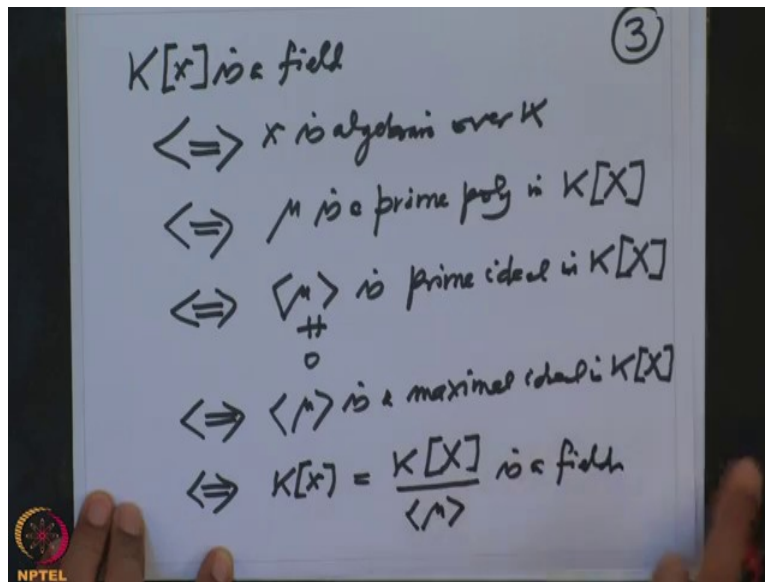 ③
K[x] is a field
<=> x is algebraic over K
<=> μ is a prime poly in K[X]
<=> <μ> is prime ideal in K[X]
≠
0
<=> <μ> is a maximal ideal in K[X]
<=> K[x] = K[X] / <μ> is a field
NPTEL